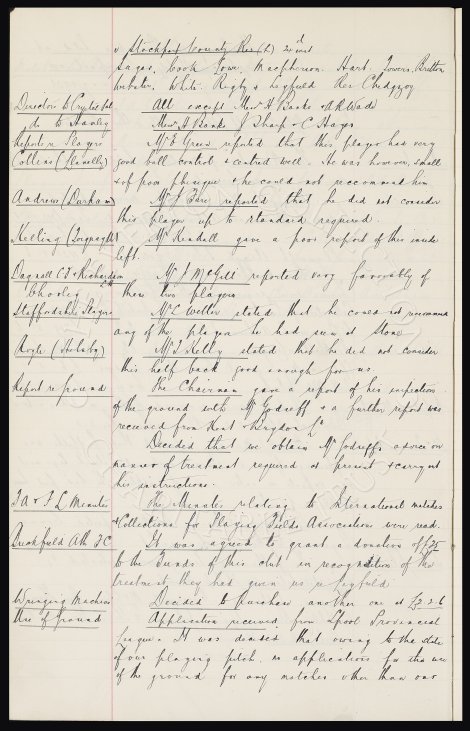 v Stockport County Res (L) 2nd inst
Sagar, Cook Lowe, Macpherson. Hart. Towers, Britton
Webster, White. Rigby & Highfield Res Chedgzoy
Directors to Crystal Pal All except Messrs H Banks & A R Wade
do to Hanley Messrs H Banks J Sharp & C Hayes
Reports re Players Mr E Green reported that this player had very
Collins (Llanelly) good ball control & centred well. He was however, small
& of poor physique & he could not recommend him
Andrew (Durham) Mr J Fare reported that he did not consider
this player up to standard required.
Kelling (Torquay) Mr Kendall gave a poor report of this inside
left.
Dagnall C F & Richardson Mr J McGill reported very favorably of
Chorley these two players
Staffordshire Players Mr C Weller stated that he could not recommend
any of the players he had seen at Stone
Royle (Ashby) Mr T Kelly stated that he did not consider
this half back good enough for us
Report re ground The Chairman gave a report of his inspection
of the ground with Mr Godreff & a further report was
received from Hunt Langdon Co
Decided that we obtain Mr Godreffs advice on
manner of treatment required at present & carry out
his instructions.
F A & F L Minutes The Minutes relating to International matches
& Collections for Playing Fields Associations were read.
Buckfield Ath F C It was agreed to grant a donation of £25
to the Funds of this club in recognition of the
treatment they had given us re
Wringing Machine Decided to purchase another one at £3 2 6
Use of ground Application received from Lpool Provincial
League. It was decided that owing to the state
of our playing pitch, no applications for the use
of the ground for any matches other than our